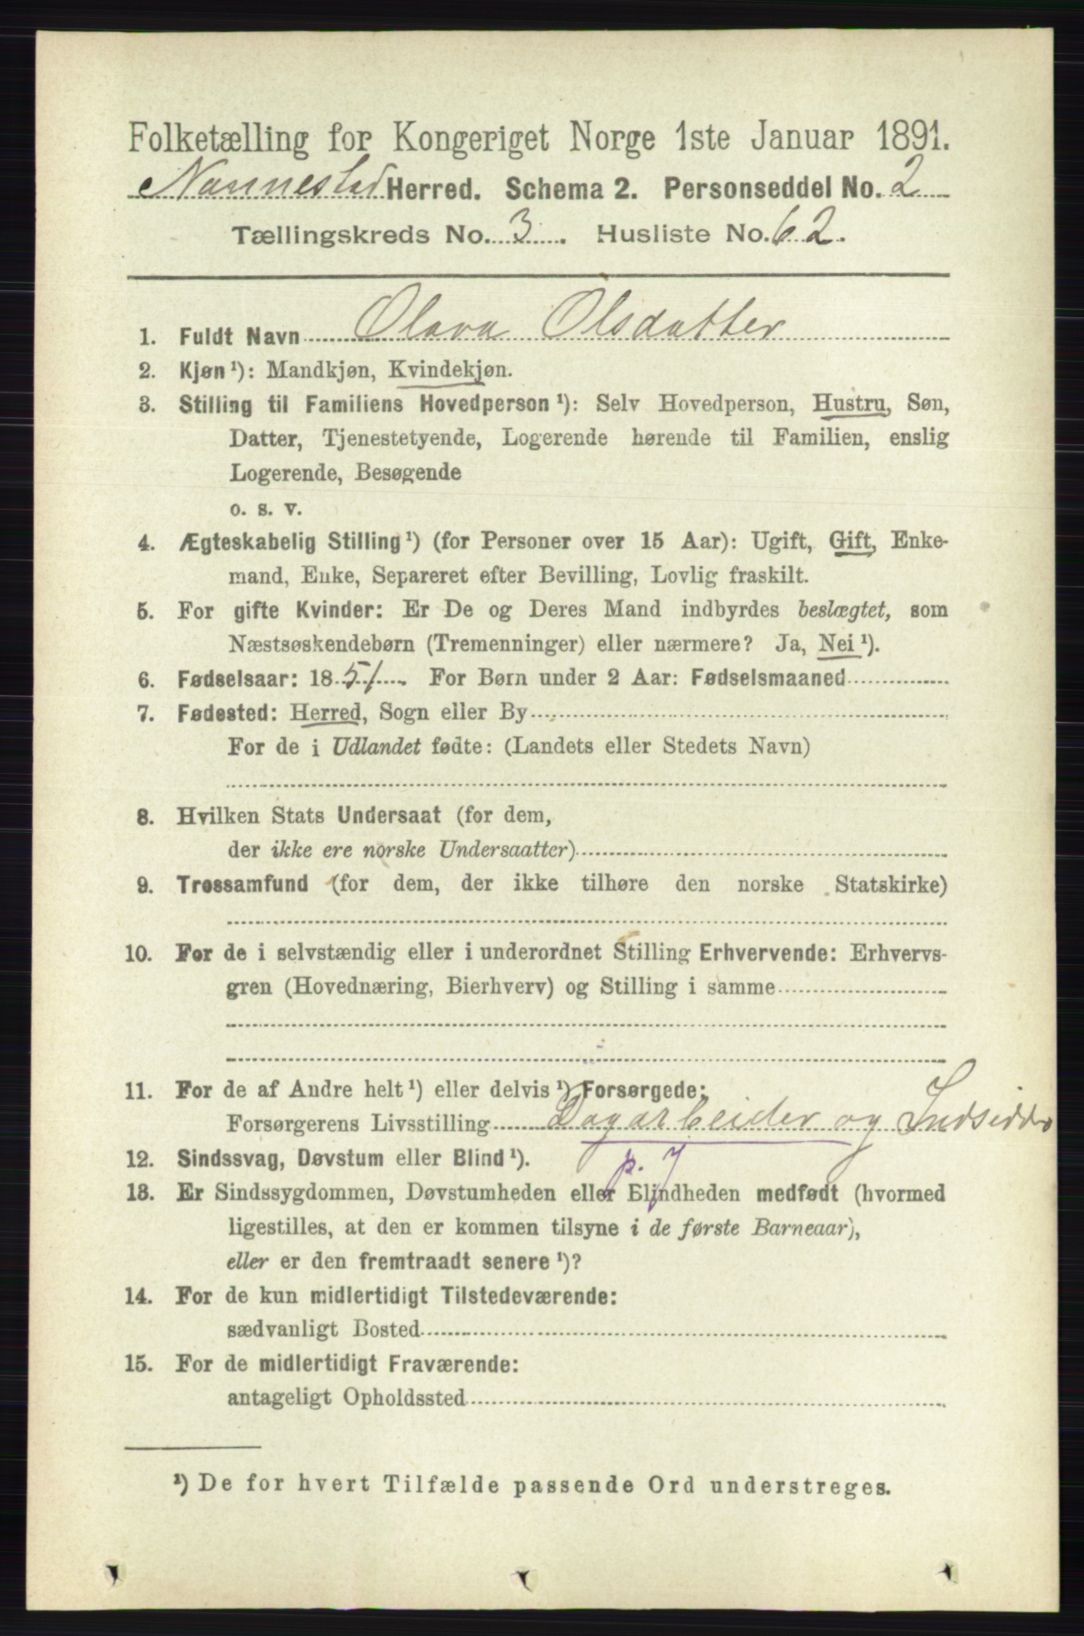 Folketælling for Kongeriget Norge 1ste Januar 1891.
Nannestad Herred. Schema 2. Personseddel No. 2
Tællingskreds No. 3. Husliste No. 62.
1. Fuldt Navn Olava Olsdatter
2. Kjøn¹): Mandkjøn, Kvindekjøn.
3. Stilling til Familiens Hovedperson¹): Selv Hovedperson, Hustru, Søn,
Datter, Tjenestetyende, Logerende hørende til Familien, enslig
Logerende, Besøgende
o. s. v.
4. Ægteskabelig Stilling¹) (for Personer over 15 Aar): Ugift, Gift, Enke-
mand, Enke, Separeret efter Bevilling, Lovlig fraskilt.
5. For gifte Kvinder: Er De og Deres Mand indbyrdes beslægtet, som
Næstsøskendebørn (Tremenninger) eller nærmere? Ja, Nei¹).
6. Fødselsaar: 1851. For Børn under 2 Aar: Fødselsmaaned
7. Fødested: Herred, Sogn eller By
For de i Udlandet fødte: (Landets eller Stedets Navn)
8. Hvilken Stats Undersaat (for dem,
der ikke ere norske Undersaatter)
9. Trossamfund (for dem, der ikke tilhøre den norske Statskirke)
10. For de i selvstændig eller i underordnet Stilling Erhvervende: Erhvervs-
gren (Hovednæring, Bierhverv) og Stilling i samme
11. For de af Andre helt¹) eller delvis¹) Forsørgede:
Forsørgerens Livsstilling Dagarbeider og Indsidder
12. Sindssvag, Døvstum eller Blind¹). p. 7
13. Er Sindssygdommen, Døvstumheden eller Blindheden medfødt (hvormed
ligestilles, at den er kommen tilsyne i de første Barneaar),
eller er den fremtraadt senere¹)?
14. For de kun midlertidigt Tilstedeværende:
sædvanligt Bosted
15. For de midlertidigt Fraværende:
antageligt Opholdssted
¹) De for hvert Tilfælde passende Ord understreges.